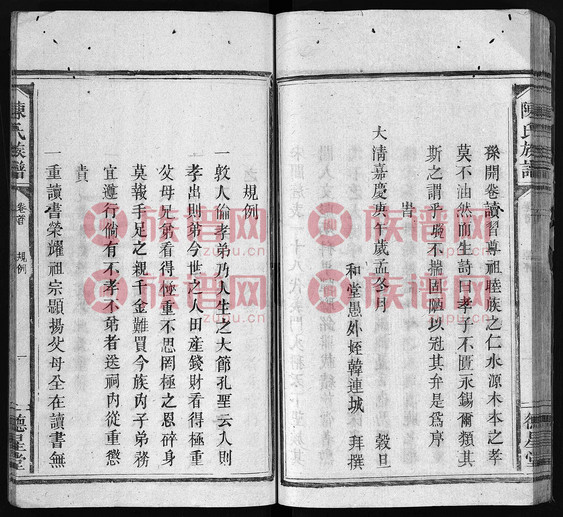 陳氏族譜
孫開卷讀習尊祖睦族之仁水源木本之孝
莫不油然而生詩曰孝子不匱永錫爾類其
斯之謂乎璵不揣固陋以冠其弁是為序
旹
大清嘉慶庚午歲孟冬月 穀旦
和堂愚外姪韓連城 拜撰
德星堂
規例
一敦人倫孝弟乃人生之大節孔聖云入則
孝出則弟今世之人田產錢財看得極重
父母兄弟看得極重不思罔極之恩碎身
莫報手足之親千金難買今族內子弟務
宜遵行倘有不孝不弟者送祠內從重懲
責
一重讀書榮耀祖宗顯揚父母全在讀書無
陳氏族譜 卷首 規例 一 德星堂
族谱网
zupu.cn
族谱网
zupu.cn
族谱网
zupu.cn
族谱网
zupu.cn